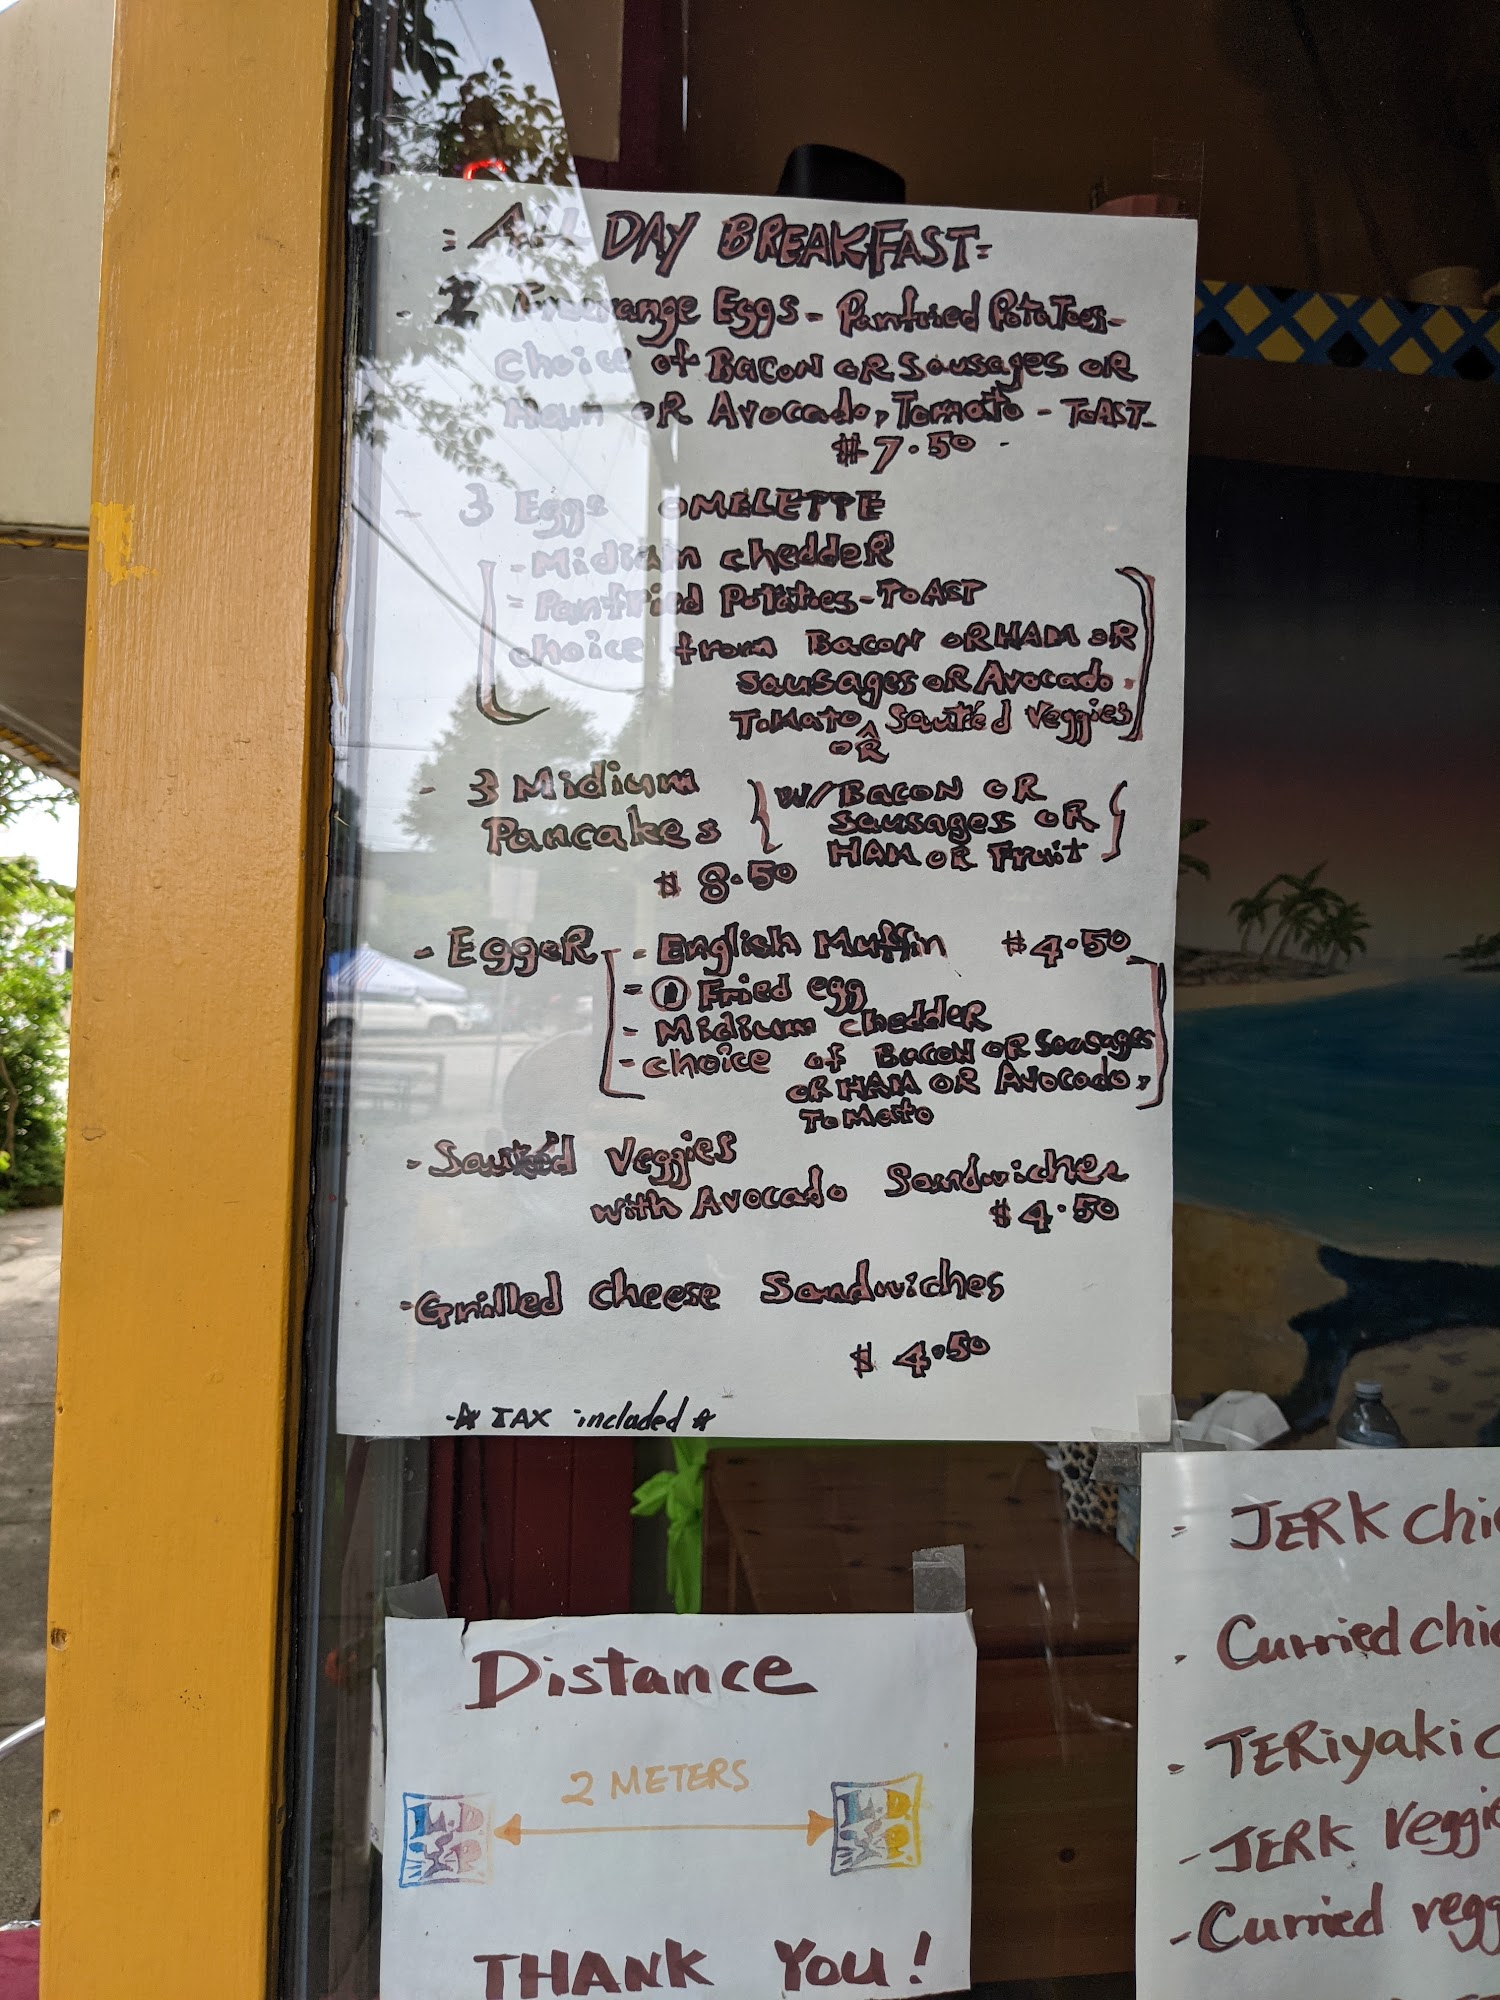 = ALL DAY BREAKFAST =
- 2 Freerange Eggs - Panfried Potatoes -
choice of Bacon OR sausages OR
Ham OR Avocado, Tomato - TOAST -
$7.50 -
- 3 Eggs OMELETTE
- Midium chedder
= Panfried Potatoes - TOAST
choice from Bacon OR HAM OR
sausages OR Avocado.
Tomato ^ Sautéd Veggies
OR
- 3 Midium
Pancakes
$ 8.50
W/ Bacon OR
sausages OR
HAM OR Fruit
- EggeR - English Muffin $4.50
= 1 Fried egg
- Midium chedder
- choice of Bacon OR sausages
OR HAM OR Avocado,
Tomato
- Sautéd Veggies
with Avocado Sandwiches
$4.50
- Grilled cheese Sandwiches
$ 4.50
TAX included
Distance
2 METERS
L.D.
L.D.
THANK YOU!
= JERK chi
- Curried chi
- TERiyaki c
- JERK Veggi
- Curried vegg